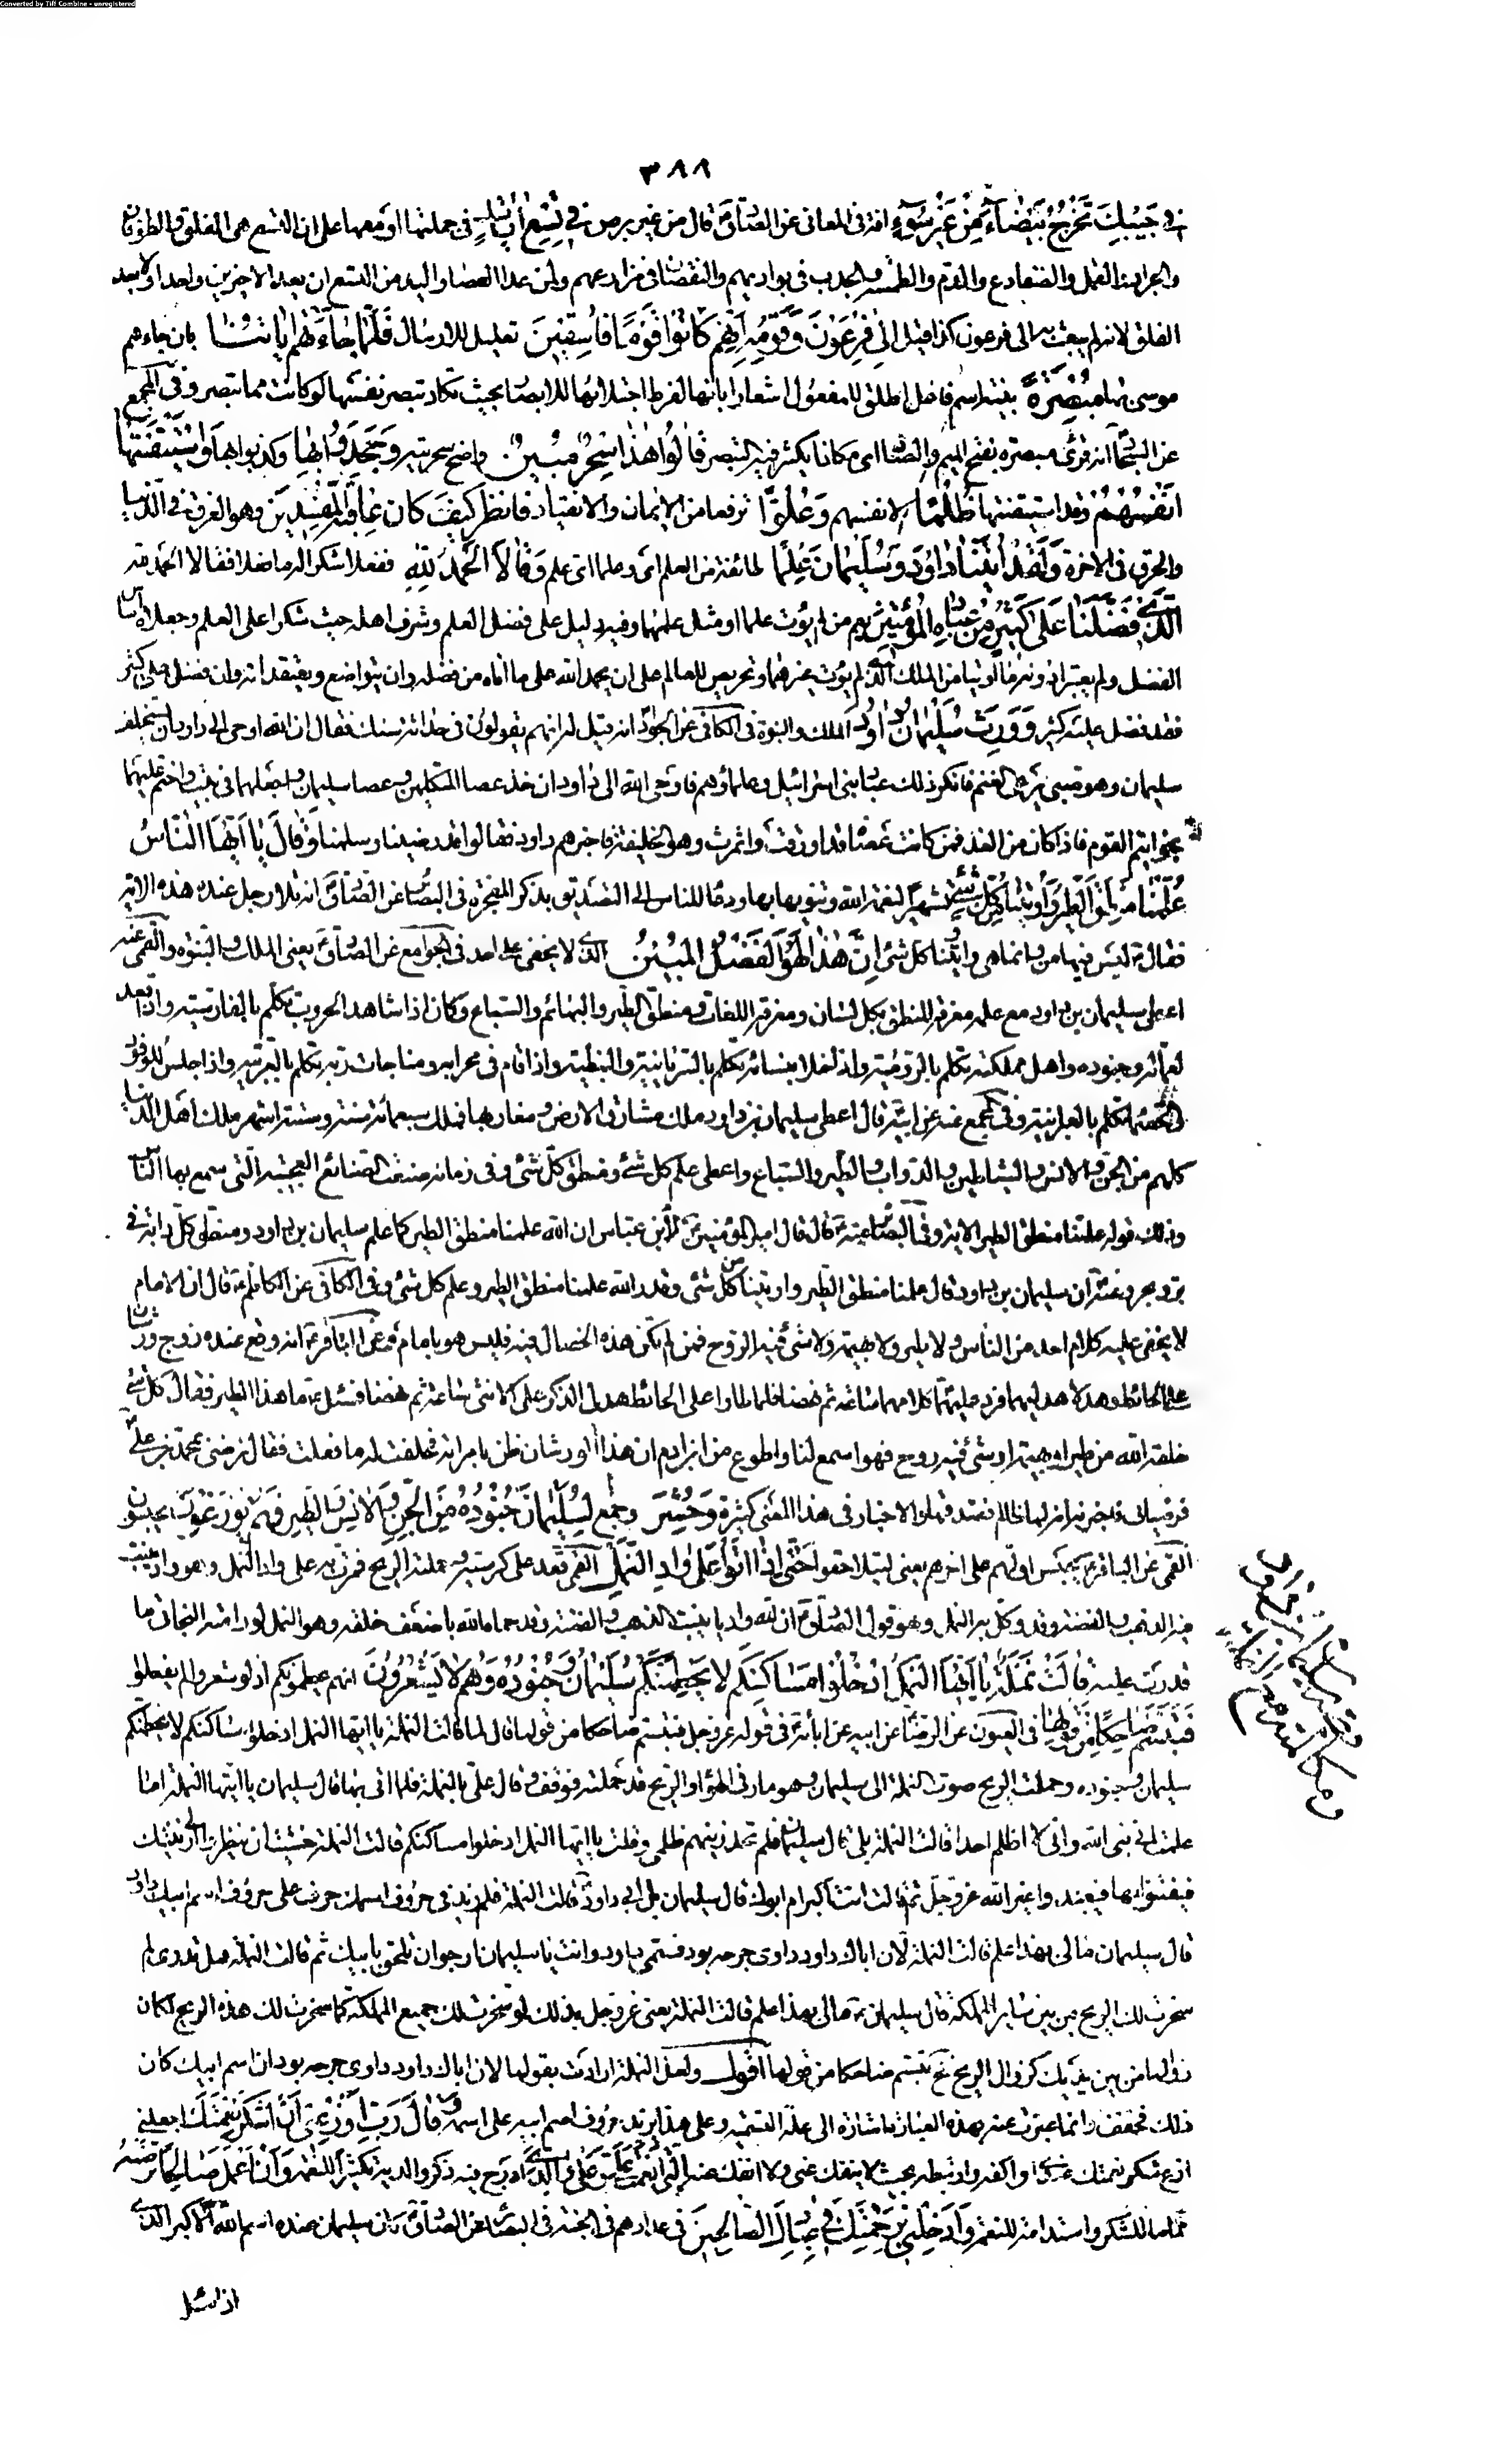 Converted by Tiff Combine - unregistered
٣٨٨
في جَيْبِكَ تَخْرُجْ بَيْضَاءَ مِنْ غَيْرِ سُوءٍ افة في المعاني عن الصادق ع قال من غير برص في تِسْعِ آيَاتٍ في جملتها او معها على ان التسع هي الفلق والطوفان
والجراد والقمل والضفادع والدم والطمسة والجدب في بواديهم والنقصان في مزارعهم ولمن عد العصا واليد من التسع ان يعد الاخيرين واحدا ولا يعد
الفلق لانه لم يبعث به الى فرعون كذا قيل إِلَى فِرْعَوْنَ وَقَوْمِهِ إِنَّهُمْ كَانُوا قَوْمًا فَاسِقِينَ تعليل للارسال فَلَمَّا جَاءَتْهُمْ آيَاتُنَا بان جاءهم
موسى بها مُبْصِرَةً بينة اسم فاعل اطلق للمفعول اشعارا بانها لفرط اجتلائها للابصار بحيث تكاد تبصر نفسها لو كانت مما تبصر وفي المجمع
عن السجاد انه قرئ مبصرة بفتح الميم والصاد اى مكانا يكثر فيه التبصر قَالُوا هَذَا سِحْرٌ مُبِينٌ واضح سحريته وَجَحَدُوا بِهَا وكذبوا بها وَاسْتَيْقَنَتْهَا
أَنْفُسُهُمْ وقد استيقنتها ظُلْمًا لانفسهم وَعُلُوًّا ترفعا من الايمان والانقياد فانظر كَيْفَ كَانَ عَاقِبَةُ الْمُفْسِدِينَ وهو الغرق في الدنيا
والحرق في الاخرة وَلَقَدْ آتَيْنَا دَاوُدَ وَسُلَيْمَانَ عِلْمًا طائفة من العلم اى وعلما اى علم وَقَالَا الْحَمْدُ لِلَّهِ ففعلا شكرا له ما فعلا فقالا الحمد لله
الَّذِي فَضَّلَنَا عَلَى كَثِيرٍ مِنْ عِبَادِهِ الْمُؤْمِنِينَ يعم من لم يؤت علما او مثل علمهما وفيه دليل على فضل العلم وشرف اهله حيث شكرا على العلم وجعلاه اساس
الفضل ولم يعتبرا دونه ما اوتيا من الملك الذى لم يؤت غيرهما وتحريص للعالم على ان يحمد الله على ما اتاه من فضله وان يتواضع ويعتقد انه وان فضل على كثير
فقد فضل عليه كثير وَوَرِثَ سُلَيْمَانُ دَاوُدَ الملك والنبوة في الكافى عن الجواد انه قيل له انهم يقولون في حداثة سنك فقال ان الله اوحى الى داود ان يستخلف
سليمان وهو صبي يرعى الغنم فانكر ذلك عباد بنى اسرائيل وعلماؤهم فاوحى الله الى داود ان خذ عصا المتكلمين وعصا سليمان واجعلهما في بيت واختم عليهما
بخواتيم القوم فاذا كان من الغد فمن كانت عصاه قد اورقت واثمرت وهو الخليفة فاخبرهم داود فقالوا قد رضينا وسلمنا وَقَالَ يَا أَيُّهَا النَّاسُ
عُلِّمْنَا مَنْطِقَ الطَّيْرِ وَأُوتِينَا مِنْ كُلِّ شَيْءٍ تشهيرا لنعمة الله وتنويها بها ودعاء للناس الى التصديق بذكر المعجزة في البصائر عن الصادق انه تلا رجل عنده هذه الاية
فقال ع ليس فيها من وانما هى واوتينا كل شئ إِنَّ هَذَا لَهُوَ الْفَضْلُ الْمُبِينُ الذى لا يخفى على احد في الجوامع عن الصادق يعنى الملك والنبوة والقمى عنه
اعطى سليمان بن داود مع علمه معرفة المنطق بكل لسان ومعرفة اللغات ومنطق الطير والبهائم والسباع وكان اذا شاهد الحروب تكلم بالفارسية واذا قعد
لعماله وجنوده واهل مملكته تكلم بالرومية واذا خلا بنسائه تكلم بالسريانية والنبطية واذا قام في محرابه ومناجات ربه تكلم بالعربية واذا جلس للوفود
والخصماء تكلم بالعبرانية وفي المجمع عنه عن ابيه قال اعطى سليمان بن داود ملك مشارق الارض ومغاربها فملك سبعمائة سنة وستة اشهر ملك اهل الدنيا
كلهم من الجن والانس والشياطين والدواب والطير والسباع واعطى علم كل شئ ومنطق كل شئ وفي زمانه صنعت الصنائع العجيبة التى سمع بها الناس
وذلك قوله علمنا منطق الطير الاية وفي البصائر عنه ع قال قال امير المؤمنين لابن عباس ان الله علمنا منطق الطير كما علم سليمان بن داود ومنطق كل دابة في
بر وبحر وعنه ع ان سليمان بن داود قال علمنا منطق الطير واوتينا من كل شئ وقد والله علمنا منطق الطير وعلم كل شئ وفي الكافى عن الكاظم ع قال ان الامام
لا يخفى عليه كلام احد من الناس ولا طير ولا بهيمة ولا شئ فيه الروح فمن لم تكن هذه الخصال فيه فليس هو بامام وعن الباقر ع انه وقع عنده زوج ورشان
على الحائط وهدلا هديلهما فرد عليهما كلامهما ساعة ثم نهضا فلما طارا على الحائط هدل الذكر على الانثى ساعة ثم نهضا فسئل ع ما هذا الطير فقال كل شئ
خلقه الله من طير او بهيمة او شئ فيه روح فهو اسمع لنا واطوع من ابن ادم ان هذا الورشان ظن بامراته فحلفت له ما فعلت فقال ترضى بمحمد بن على
فرضيا بى فاخبرته انه لها ظالم فصدقها والاخبار في هذا المعنى كثيرة وَحُشِرَ وجمع لِسُلَيْمَانَ جُنُودُهُ مِنَ الْجِنِّ وَالْإِنْسِ وَالطَّيْرِ فَهُمْ يُوزَعُونَ يحبسون
القمى عن الباقر ع يحبس اولهم على اخرهم يعنى ليتلاحقوا حَتَّى إِذَا أَتَوْا عَلَى وَادِ النَّمْلِ القمى قعد على كرسيه وحملته الريح فمرت به على واد النمل وهو واد ينبت
فيه الذهب والفضة وقد وكل به النمل وهو قول الصادق ع ان لله واديا ينبت الذهب والفضة وقد حماه الله باضعف خلقه وهو النمل لو رامته البخاتى ما
قدرت عليه قَالَتْ نَمْلَةٌ يَا أَيُّهَا النَّمْلُ ادْخُلُوا مَسَاكِنَكُمْ لَا يَحْطِمَنَّكُمْ سُلَيْمَانُ وَجُنُودُهُ وَهُمْ لَا يَشْعُرُونَ انهم يحطمونكم اذ لو شعروا لم يفعلوا
فَتَبَسَّمَ ضَاحِكًا مِنْ قَوْلِهَا في العيون عن الرضا عن ابيه عن ابائه ع في قوله عز وجل فتبسم ضاحكا من قولها قال لما قالت النملة يا ايها النمل ادخلوا مساكنكم لا يحطمنكم
سليمان وجنوده وحملت الريح صوت النملة الى سليمان وهو مار في الهواء والريح قد حملته فوقف وقال على بالنملة فلما اتى بها قال سليمان يا ايتها النملة اما
علمت انى نبى الله وانى لا اظلم احدا قالت النملة بلى قال سليمان فلم تحذرينهم ظلمى وقلت يا ايها النمل ادخلوا مساكنكم قالت النملة خشيت ان ينظروا الى زينتك
فيفتتنوا بها فيعبدوا غير الله عز وجل ثم قالت النملة انت اكبر ام ابوك قال سليمان بل ابى داود قالت النملة فلم زيد في حروف اسمك حرف على حروف اسم ابيك داود
قال سليمان ما لى بهذا علم قالت النملة لان اباك داود داوى جرحه بود فسمى داود وانت يا سليمان ارجو ان تلحق بابيك ثم قالت النملة هل تدرى لم
سخرت لك الريح من بين سائر المملكة قال سليمان ع ما لى بهذا علم قالت النملة يعنى عز وجل بذلك لو سخرت لك جميع المملكة كما سخرت لك هذه الريح لكان
زوالها من بين يديك كزوال الريح فح تبسم ضاحكا من قولها اقول ولعل النملة ارادت بقولها لان اباك داود داوى جرحه بود ان اسم ابيك كان
ذلك فخفف وانما عبرت عنه بهذه العبارة اشارة الى علة التسمية وعلى هذا يزيد حروف اسم ابيه على اسمه وَقَالَ رَبِّ أَوْزِعْنِي أَنْ أَشْكُرَ نِعْمَتَكَ اجعلنى
ازع شكر نعمتك عندى اى اكفه وارتبطه بحيث لا ينفلت عنى ولا انفك عنه الَّتِي أَنْعَمْتَ عَلَيَّ وَعَلَى وَالِدَيَّ ادرج فيه ذكر والديه تكثيرا للنعمة وَأَنْ أَعْمَلَ صَالِحًا تَرْضَاهُ
تماما للشكر واستدامة للنعمة وَأَدْخِلْنِي بِرَحْمَتِكَ فِي عِبَادِكَ الصَّالِحِينَ في عدادهم في الجنة في البصائر عن الصادق ع كان سليمان عنده اسم الله الاكبر الذى
اذا سئل